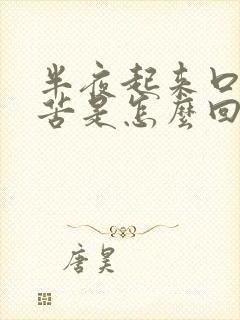 半夜起来口
苦是怎麼回
唐昊